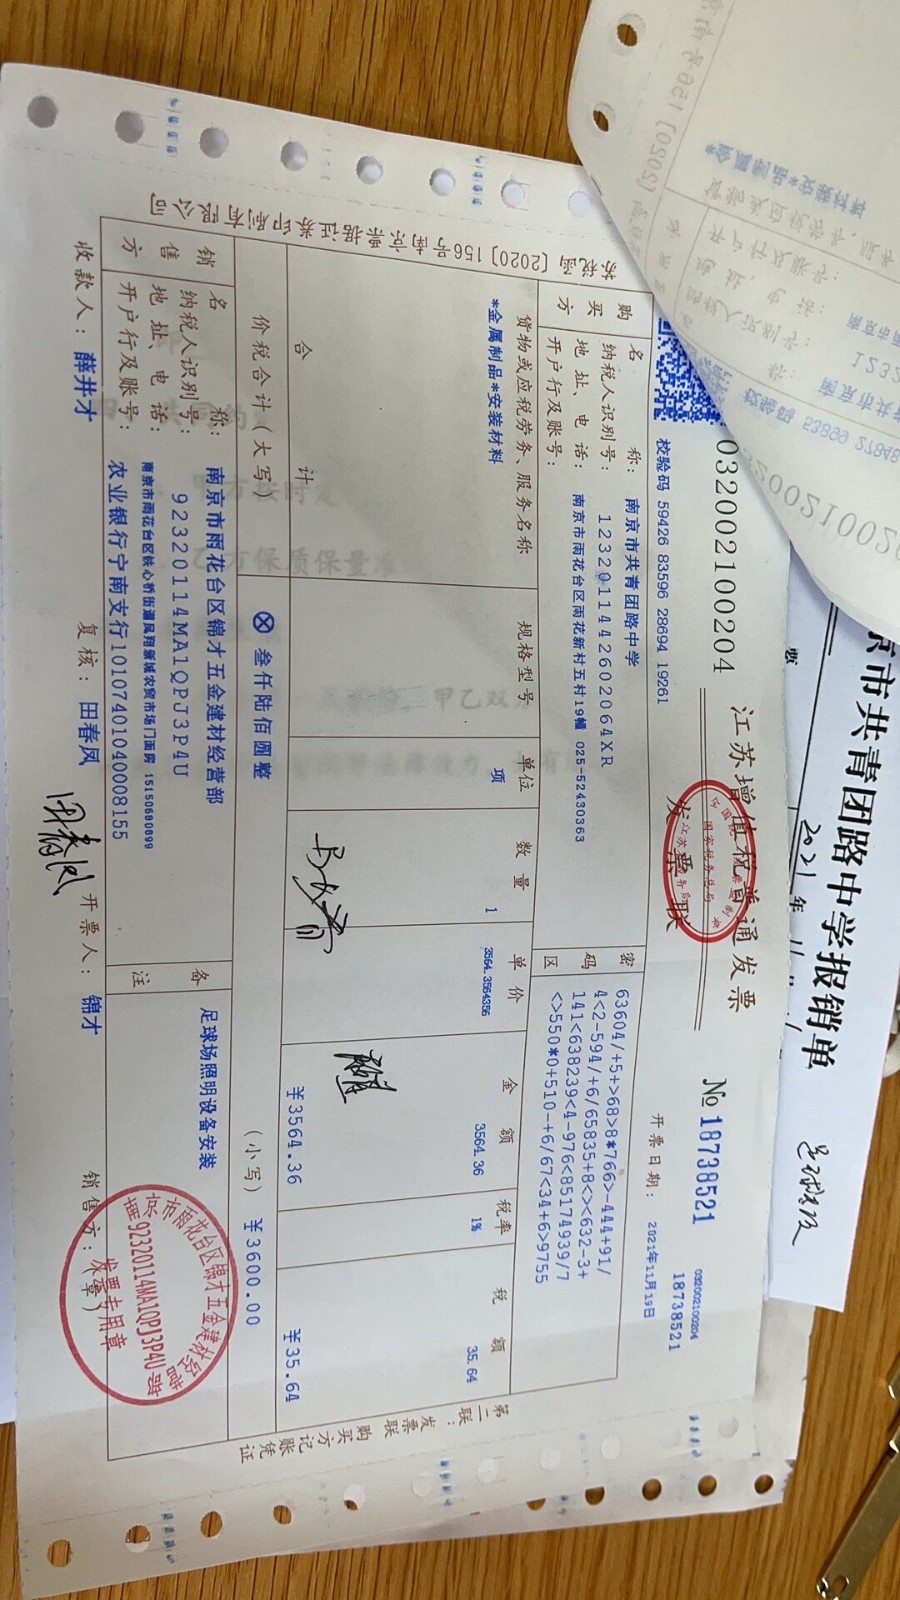 032002100204
江苏增值税普通发票
发票联
№ 18738521
032002100204
18738521
校验码 59426 83596 28694 19261
开票日期: 2021年11月19日
购买方
名 称: 南京市共青团路中学
纳税人识别号: 1232011442602064XR
地址、电话: 南京市雨花台区雨花新村五村19幢 025-52430363
开户行及账号:
密码区
63604/+5+>68>8*766>-444+91/
4<2-594/+6/65835+8<><632-3+
141<638239<4-976<85174939/7
<>550*0+510-+6/67<34+6>9755
货物或应税劳务、服务名称 规格型号 单位 数量 单价 金额 税率 税额
*金属制品*安装材料 项 1 3564.3564356 3564.36 1% 35.64
合计 ¥3564.36 ¥35.64
价税合计(大写) ⊗ 叁仟陆佰圆整 (小写) ¥3600.00
销售方
名 称: 南京市雨花台区锦才五金建材经营部
纳税人识别号: 92320114MA1QPJ3P4U
地址、电话: 南京市雨花台区铁心桥街道凤翔新城农贸市场门面房 15150680899
开户行及账号: 农业银行宁南支行10107401040008155
备注
足球场照明设备安装
收款人: 薛井才 复核: 田春凤 开票人: 锦才 销售方:(章)
田春凤
苏税函[2020]156号南京票据证券印刷有限公司
第二联:发票联 购买方记账凭证
92320114MA1QPJ3P4U
发票专用章
京市共青团路中学报销单
2021年11
票
乙方保质保量
甲乙双